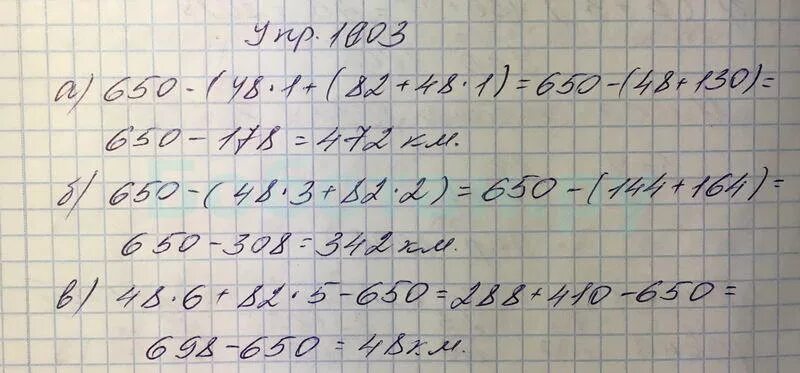 Упр. 1003
а) 650 - (48·1 + (82 + 48·1) = 650 - (48 + 130) =
650 - 178 = 472 км.
б) 650 - (48·3 + 82·2) = 650 - (144 + 164) =
650 - 308 = 342 км.
в) 48·6 + 82·5 - 650 = 288 + 410 - 650 =
698 - 650 = 48 км.